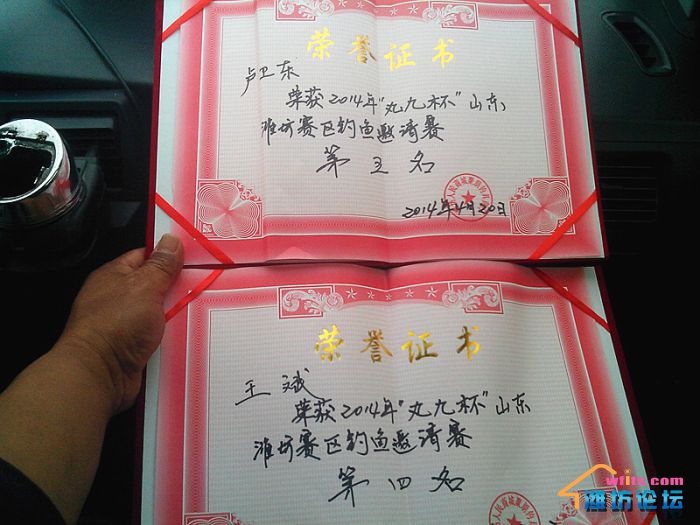 荣誉证书
卢卫东
荣获2014年"丸九杯"山东
潍坊赛区钓鱼邀请赛
第五名
2014年4月20日
荣誉证书
王斌
荣获2014年"丸九杯"山东
潍坊赛区钓鱼邀请赛
第四名
wfits.com
潍坊论坛